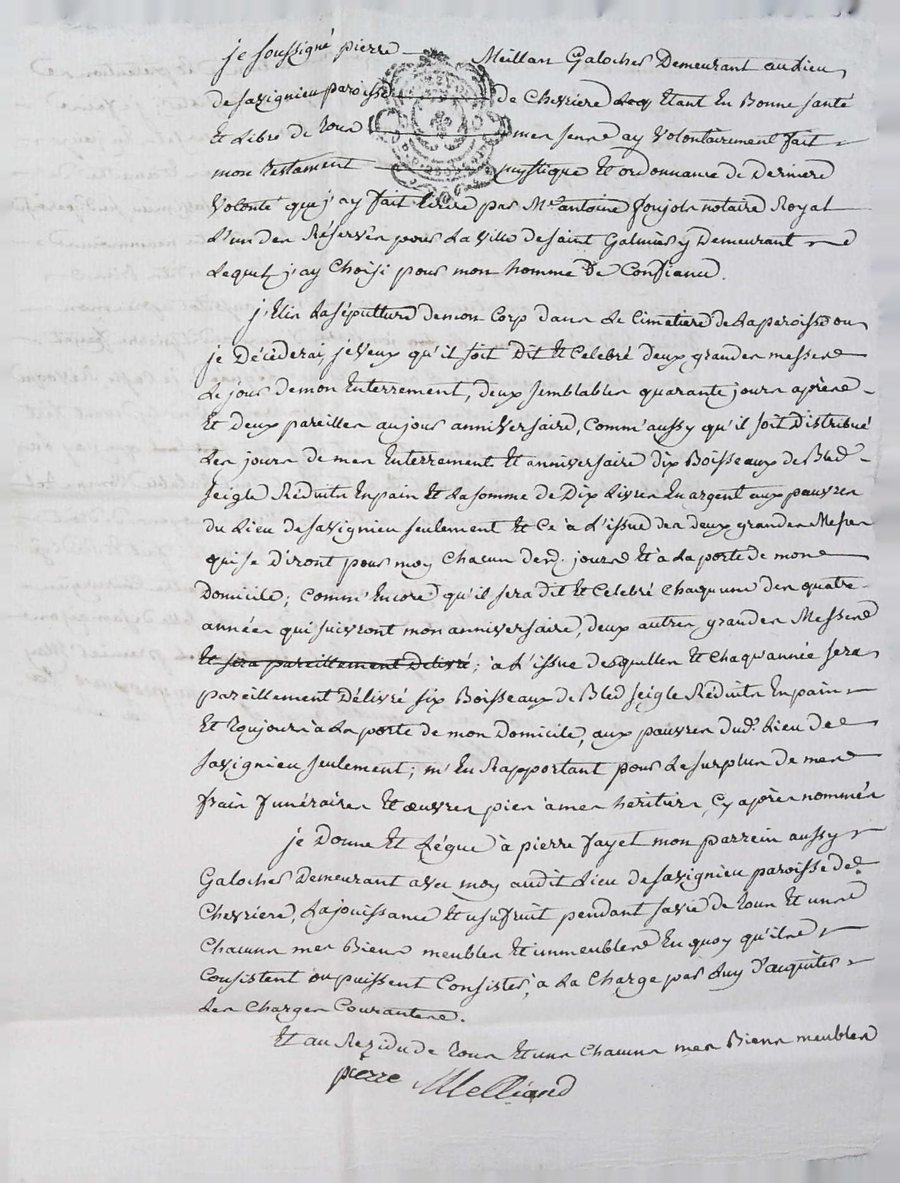 je soussigné pierre Meillan Galocher Demeurant au Lieu
de savignieu paroisse de Chevriere Leq.l Etant En Bonne santé
Et Libre de Tous mes senns ay Volontairement fait
mon testament mystique Et ordonnance de Derniere
Volonté que j'ay fait Ecrire par Me antoine foujols notaire Royal
L'un des Réservés pour La Ville de saint Galmier y Demeurant
Lequel j'ay Choisi pour mon homme de Confiance.
j'Elis La sépulture de mon Corp dans Le Cimetiere de La paroisse ou
je Décèderay, je Veux qu'il soit Dit Et Celebré deux grandes messes
Le jour de mon Enterrement, deux semblables quarante jours après
Et deux pareilles au jour anniversaire, Comm'aussy qu'il soit Distribué
Les jours de mes Enterrement Et anniversaire dix Boisseaux de Bled
seigle Réduits En pain Et La somme de Dix Livres En argent aux pauvres
du Lieu de savignieu seulement Et Ce à L'issue des deux grandes Messes
qui se Diront pour moy Chacun desd. jours Et à La porte de mon
Domicile; Comm'Encore qu'il sera dit Et Celebré Chaqu'une des quatre
années qui suivront mon anniversaire, deux autres grandes Messes
Et sera pareillement Délivré; à L'issue desquelles Et Chaqu'année sera
pareillement Délivré six Boisseaux de Bled seigle Réduits En pain
Et Toujours à La porte de mon Domicile, aux pauvres dud. Lieu de
savignieu seulement; m'En Rapportant pour Le surplus de mes
frais funéraires Et œuvres pies à mes héritiers Cy après nommés
je Donne Et Lègue à pierre fayet mon parrein aussy
Galocher Demeurant avec moy audit Lieu de savignieu paroisse de
Chevriere, La jouissance Et usufruit pendant sa vie de Tous Et uns
Chacuns mes Biens meubles Et immeubles En quoy qu'ils
Consistent ou puissent Consister, à La Charge par Luy d'acquiter
Les Charges Courantes.
Et au Rézidu de Tous Et uns Chacuns mes Biens meubles
pierre Melliand